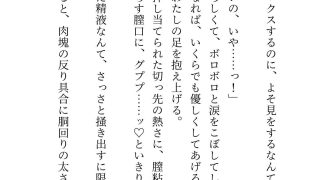 クスするのに、よそ見をするなんて
の、いや……っ！」
らしくて、ボロボロと涙をこぼしてし
なれば、いくらでも優しくしてあげる
わたしの足を抱え上げる。
押し当てられた切っ先の熱さに、膣粘
す膣口に、グププ……ッ♡といきり
精液なんて、さっさと掻き出すに限
ると、肉塊の反り具合に胴回りの太さ